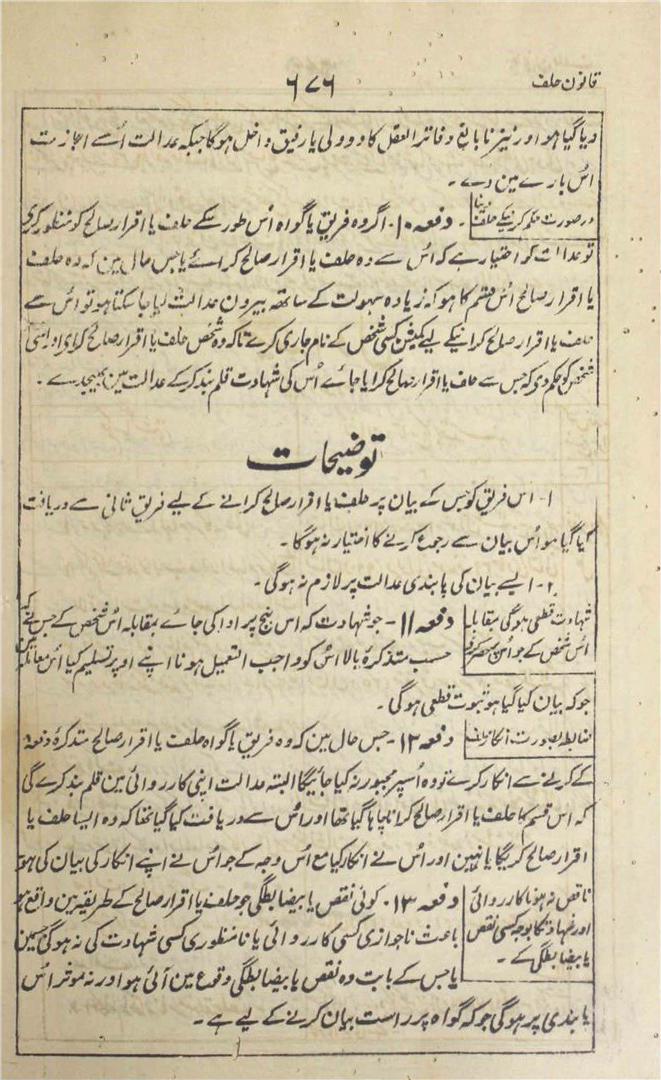 قانون حلف
۶۷۶
دیا گیا ہو اور نیز نابالغ و فاتر العقل کا وہ ولی یا رفیق داخل ہوگا جبکہ عدالت اُسے اجازت
اس بارے مین دے۔
درصورت حکم کرنیکے حلف دینا
دفعہ ۱۰۔ اگر وہ فریق یا گواہ اُس طور کے حلف یا اقرار صالح کو منظور کرے
تو عدالت کو اختیار ہے کہ اُس سے وہ حلف یا اقرار صالح کرائے یا جس حال مین کہ وہ حلف
یا اقرار صالح اُس قسم کا ہو کہ زیادہ سہولت کے ساتھ بیرون عدالت لیا جا سکتا ہو تو اُس سے
حلف یا اقرار صالح کرانیکے لیے کمیشن کسی شخص کے نام جاری کرے تاکہ وہ شخص حلف یا اقرار صالح کراوے اور اسی
شخص کو حکم دی کہ جس سے حلف یا اقرار صالح کرایا جائے اُس کی شہادت قلم بند کر کے عدالت مین بھیجدے۔
توضیحات
۱۔ اس فریق کو جس کے بیان پر حلف یا اقرار صالح کرانے کے لیے فریق ثانی سے دریافت
کیا گیا ہو اُس بیان سے رجوع کرنے کا اختیار نہ ہوگا۔
۲۔ ایسے بیان کی پابندی عدالت پر لازم نہ ہوگی۔
شہادت قطعی ہوگی بمقابلہ
اُس شخص کے جو اُس پر حصر کرے
دفعہ ۱۱۔ جو شہادت کہ اس نہج پر ادا کی جائے بمقابلہ اُس شخص کے جس نے کہ
حسب متذکرۂ بالا اُس کو واجب التعمیل ہونا اپنے اوپر تسلیم کیا اُس معاملہ مین
جو کہ بیان کیا گیا ہو ثبوت قطعی ہوگی۔
ضابطہ بصورت انکار حلف
دفعہ ۱۲۔ جس حال مین کہ وہ فریق یا گواہ حلف یا اقرار صالح متذکرۂ دفعہ
کے کرنے سے انکار کرے تو وہ اُسپر مجبور نہ کیا جائیگا البتہ عدالت اپنی کارروائی مین قلم بند کرے گی
کہ اس قسم کا حلف یا اقرار صالح کرانا چاہا گیا تھا اور اُس سے دریافت کیا گیا تھا کہ وہ ایسا حلف یا
اقرار صالح کریگا یا نہین اور اُس نے انکار کیا مع اُس وجہ کے جو اُس نے اپنے انکار کی بیان کی ہو
ناقص نہ ہونا کارروائی
اور شہادت کا بوجہ کسی نقص
یا بیضابطگی کے۔
دفعہ ۱۳۔ کوئی نقص یا بیضابطگی جو حلف یا اقرار صالح کے طریقہ مین واقع ہو
باعث ناجوازی کسی کارروائی یا نامنظوری کسی شہادت کی نہ ہوگی جس مین
یا جس کے بابت وہ نقص یا بیضابطگی وقوع مین آئی ہو اور نہ موثر اُس
پابندی پر ہوگی جو کہ گواہ پر راست بیان کرنے کے لیے ہے۔